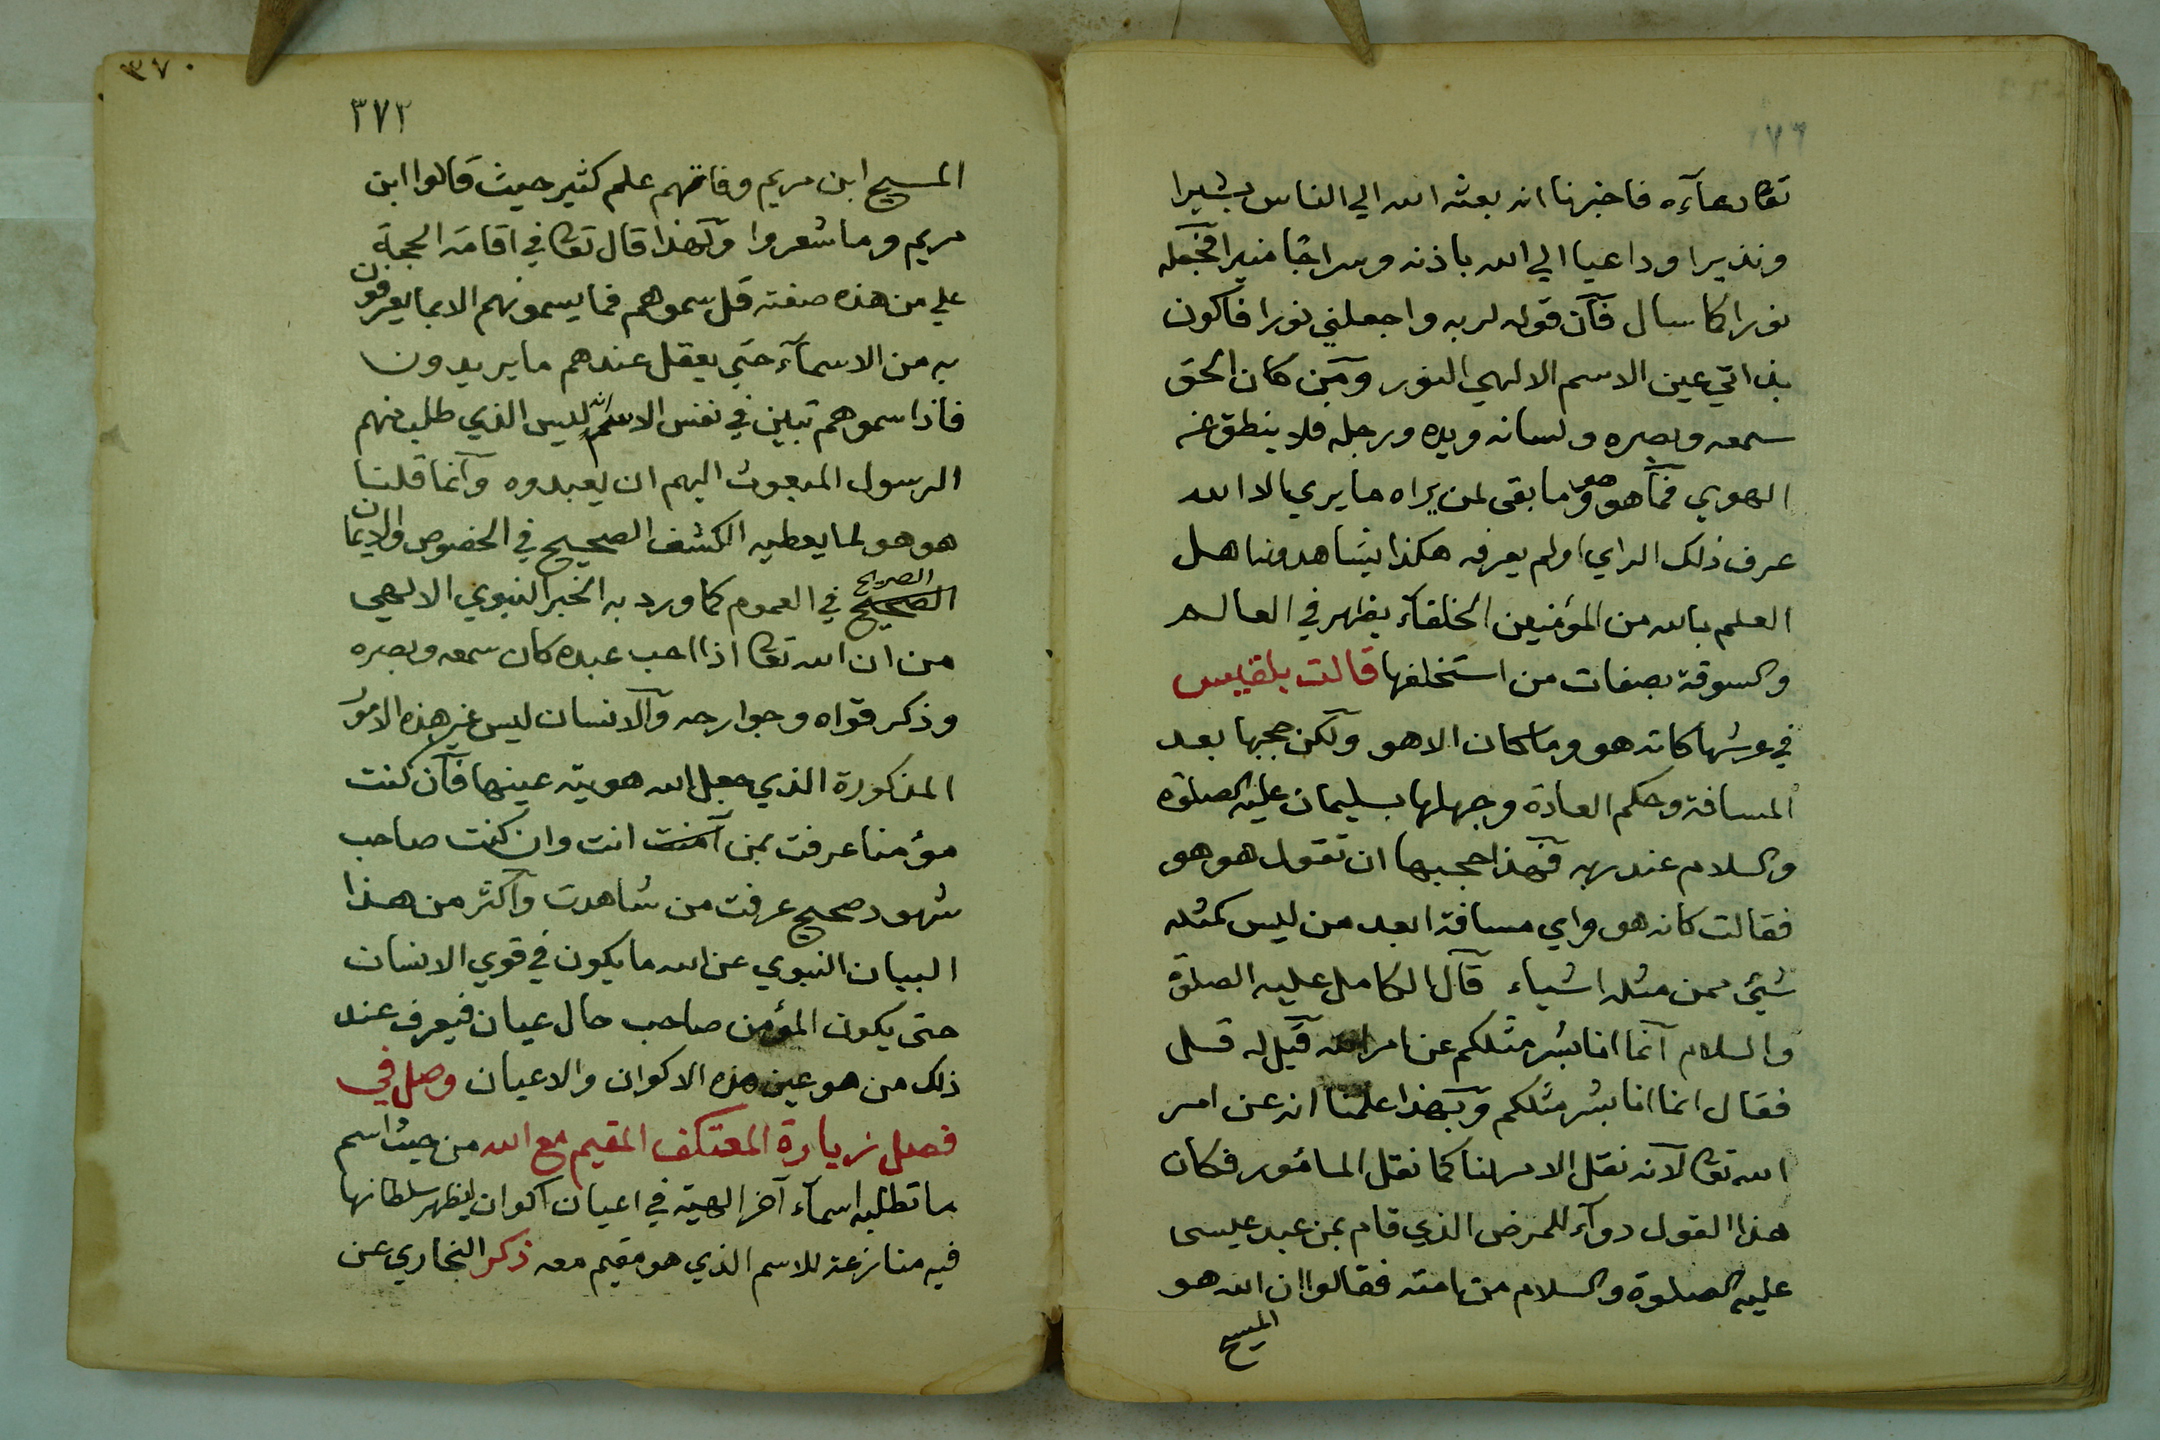 تعالى دعآءه فاخبرنا انه بعثه الله الي الناس بشيرا
ونذيرا وداعيا الي الله باذنه وسراجا منيرا فجعله
نورا كما سال فآن قوله لربه واجعلني نورا فاكون
بذاتي عين الاسم الالهي النور ومن كان الحق
سمعه وبصره ولسانه ويده ورجله فلا ينطق عن
الهوي فمآ هو هو وما بقى لمن يراه ما يري الا الله
عرف ذلك الراي اولم يعرفه هكذا يشاهدونا هل
العلم بالله من المؤمنين الخلفآء يظهر في العالم
والسوقة بصفات من استخلفها قالت بلقيس
في عرشها كانه هو وما كان الا هو ولكن حجبها بعد
المسافة وحكم العادة وجهلها بسليمان عليه الصلوة
والسلام عند ربه فهذا حجبها ان تقول هو هو
فقالت كانه هو واي مسافة ابعد من ليس كمثله
شئ ممن مثله اشياء قآل الكامل عليه الصلوة
والسلام آنما انا بشر مثلكم عن امر الله قيل له قل
فقال انما انا بشر مثلكم وبهذا علمنا انه عن امر
الله تعالى لآنه نقل الامر لنا كما نقل المامور فكان
هذا القول دوآء للمرض الذي قام بمن عبد عيسى
عليه الصلوة والسلام من امته فقالوا ان الله هو
المسيح
٣٧٠
٣٧٢
المسيح ابن مريم وفاتهم علم كثير حيث قالوا ابن
مريم وما شعروا ولهذا قال تعالى في اقامة الحجة
علي من هذه صفته قل سموهم فما يسمونهم الا بما يعرفون
به من الاسمآء حتي يعقل عندهم ما يريدون
فاذا سموهم تبين في نفس الاسم انه ليس الذي طلب منهم
الرسول المبعوث اليهم ان يعبدوه وآنما قلنا
هو هو لما يعطيه الكشف الصحيح في الخصوص والايمان
الصحيح الصريح في العموم كما ورد به الخبر النبوي الالهي
من ان الله تعالى اذا احب عبده كان سمعه وبصره
وذكر قواه وجوارحه وآلانسان ليس غير هذه الامور
المذكورة الذي جعل الله هويته عينها فآن كنت
مؤمنا عرفت بمن آمنت انت وان كنت صاحب
شهود صحيح عرفت من شاهدت وآكثر من هذا
البيان النبوي عن الله ما يكون في قوي الانسان
حتى يكون المؤمن صاحب حال عيان فيعرف عند
ذلك من هو عين هذه الاكوان والاعيان وصل في
فصل زيارة المعتكف المقيم مع الله من حيث اسم
ما تطلبه اسمآء آخر الهية في اعيان اكوان ليظهر سلطانها
فيه منازعة للاسم الذي هو مقيم معه ذكر البخاري عن